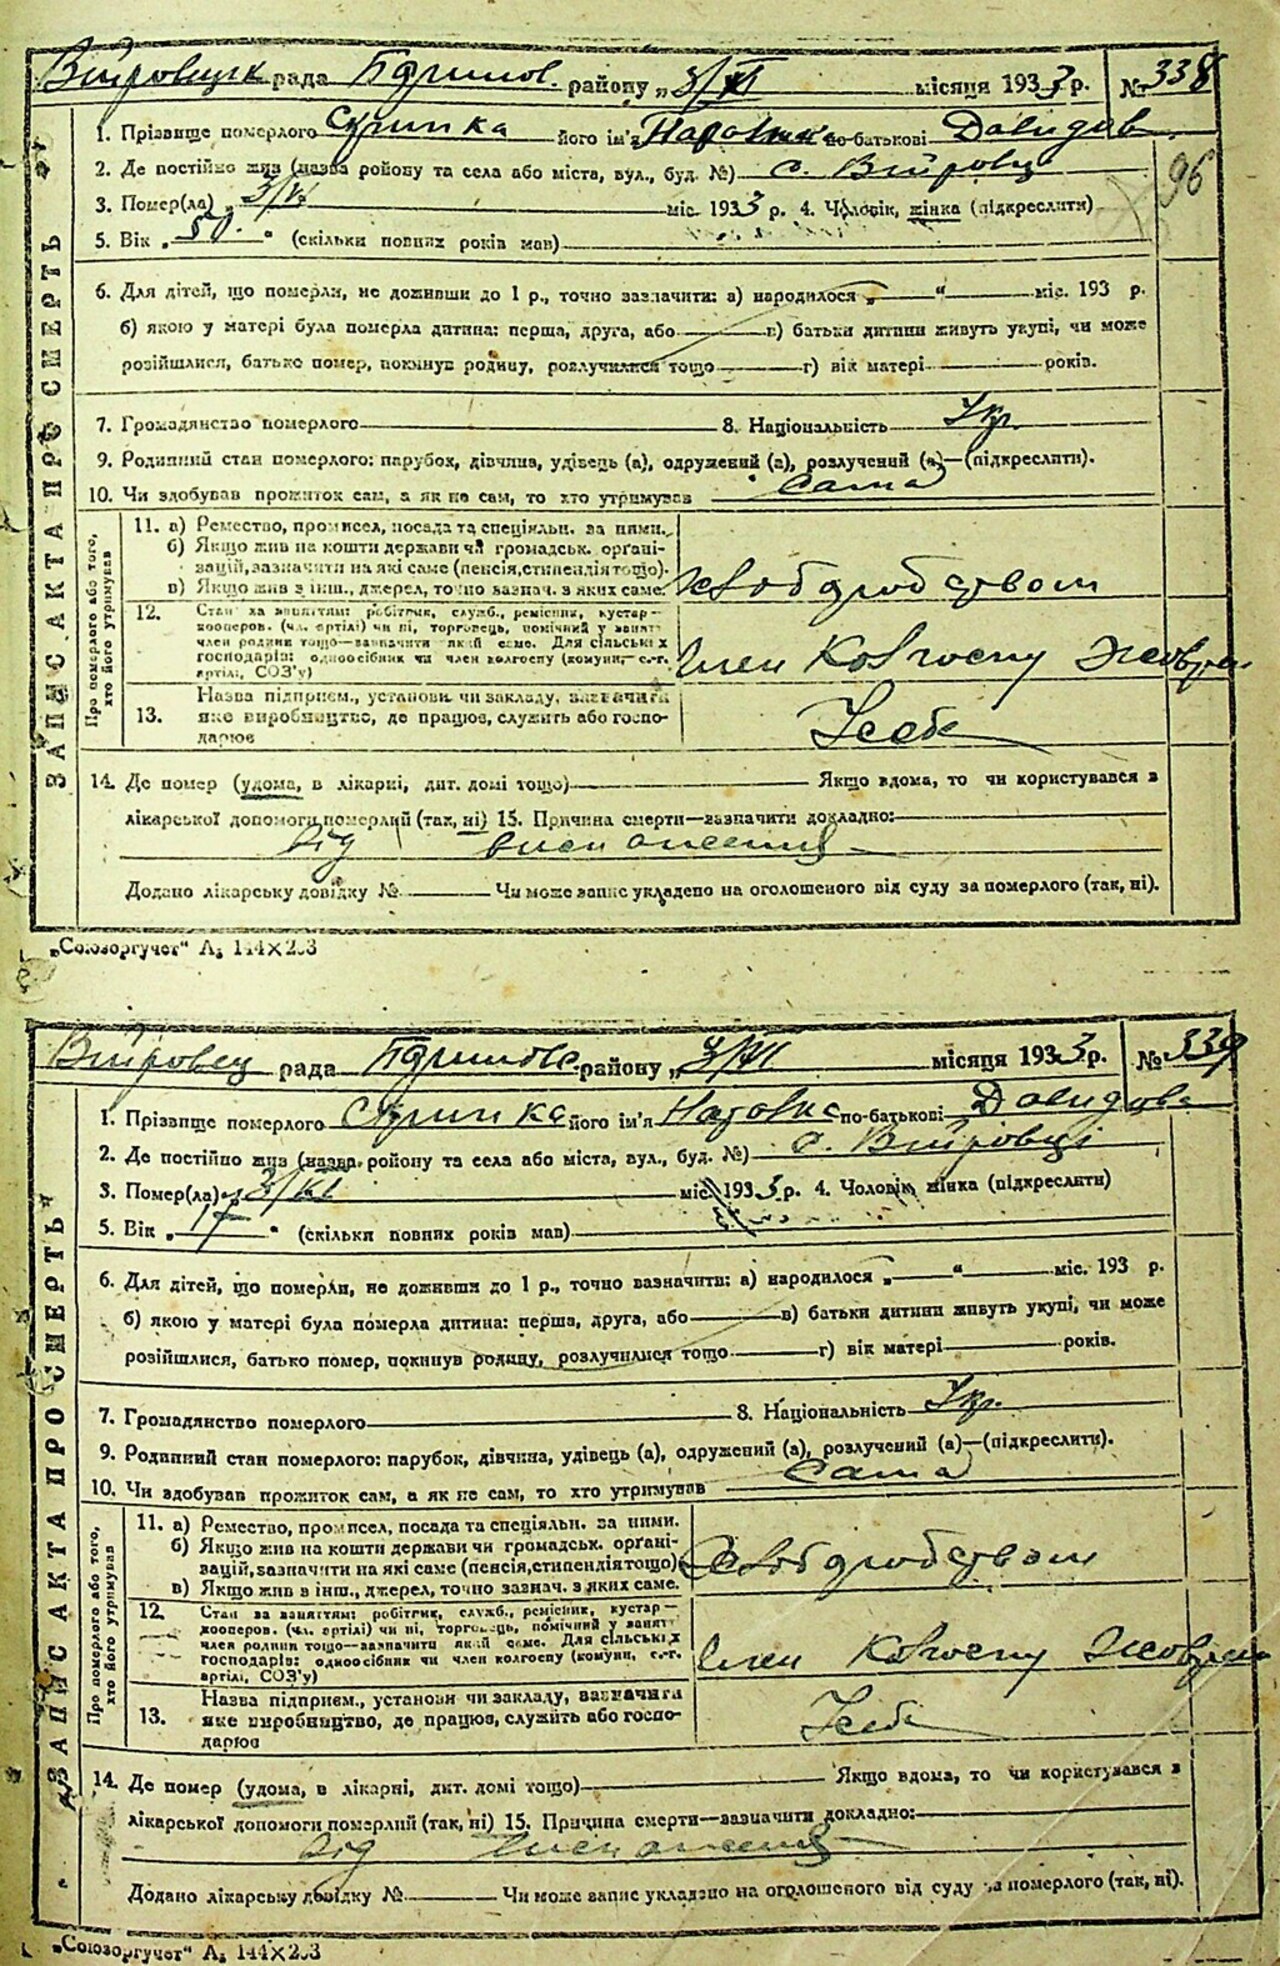 рада району „3/VI місяця 1933 р. № 338
96
„ЗАПИС АКТА ПРО СМЕРТЬ"
1. Прізвище померлого Скрипка його ім'я по-батькові Давидов.
2. Де постійно жив (назва району та села або міста, вул., буд. №) с.
3. Помер(ла) „3/VI міс. 1933 р. 4. Чоловік, жінка (підкреслити)
5. Вік „50." (скільки повних років мав)
6. Для дітей, що померли, не доживши до 1 р., точно зазначити: а) народилося „ " міс. 193 р.
б) якою у матері була померла дитина: перша, друга, або в) батьки дитини живуть укупі, чи може
розійшлися, батько помер, покинув родину, розлучилися тощо г) вік матері років.
7. Громадянство померлого 8. Національність Укр.
9. Родинний стан померлого: парубок, дівчина, удівець (а), одружений (а), розлучений (а)—(підкреслити).
10. Чи здобував прожиток сам, а як не сам, то хто утримував сама
Про померлого або того, хто його утримував
11. а) Ремество, промисел, посада та спеціяльн. за ними.
б) Якщо жив на кошти держави чи громадськ. орґані-
зацій, зазначити на які саме (пенсія, стипендія тощо).
в) Якщо жив з інш., джерел, точно зазнач. з яких саме.
12. Стан за заняттям: робітник, служб., ремісник, кустар—
кооперов. (чл. артілі) чи ні, торговець, помічний у занятт
член родини тощо—зазначити який саме. Для сільських
господарів: одноосібник чи член колгоспу (комуни, с.-г.
артілі, СОЗ'у) член колгоспу
13. Назва підприєм., установи чи закладу, зазначити
яке виробництво, де працює, служить або госпо-
дарює У себе
14. Де помер (удома, в лікарні, дит. домі тощо) Якщо вдома, то чи користувався з
лікарської допомоги померлий (так, ні) 15. Причина смерти—зазначити докладно:
від виснаження
Додано лікарську довідку № Чи може запис укладено на оголошеного від суду за померлого (так, ні).
„Союзоргучет" А₅ 144×203
рада району „3/VI місяця 1933 р. № 339
„ЗАПИС АКТА ПРО СМЕРТЬ"
1. Прізвище померлого Скрипка його ім'я по-батькові Давидовна
2. Де постійно жив (назва району та села або міста, вул., буд. №) с.
3. Помер(ла) „3/VI міс. 1933 р. 4. Чоловік, жінка (підкреслити)
5. Вік „17" (скільки повних років мав)
6. Для дітей, що померли, не доживши до 1 р., точно зазначити: а) народилося „ " міс. 193 р.
б) якою у матері була померла дитина: перша, друга, або в) батьки дитини живуть укупі, чи може
розійшлися, батько помер, покинув родину, розлучилися тощо г) вік матері років.
7. Громадянство померлого 8. Національність Укр.
9. Родинний стан померлого: парубок, дівчина, удівець (а), одружений (а), розлучений (а)—(підкреслити).
10. Чи здобував прожиток сам, а як не сам, то хто утримував сама
Про померлого або того, хто його утримував
11. а) Ремество, промисел, посада та спеціяльн. за ними.
б) Якщо жив на кошти держави чи громадськ. орґані-
зацій, зазначити на які саме (пенсія, стипендія тощо)
в) Якщо жив в інш., джерел, точно зазнач. з яких саме.
12. Стан за заняттям: робітник, служб., ремісник, кустар—
кооперов. (чл. артілі) чи ні, торговець, помічний у занятт
член родини тощо—зазначити який саме. Для сільських
господарів: одноосібник чи член колгоспу (комуни, с.-г.
артілі, СОЗ'у) член колгоспу
13. Назва підприєм., установи чи закладу, зазначити
яке виробництво, де працює, служить або госпо-
дарює У себе
14. Де помер (удома, в лікарні, дит. домі тощо) Якщо вдома, то чи користувався з
лікарської допомоги померлий (так, ні) 15. Причина смерти—зазначити докладно:
від виснаження
Додано лікарську довідку № Чи може запис укладено на оголошеного від суду за померлого (так, ні).
„Союзоргучет" А₅ 144×203